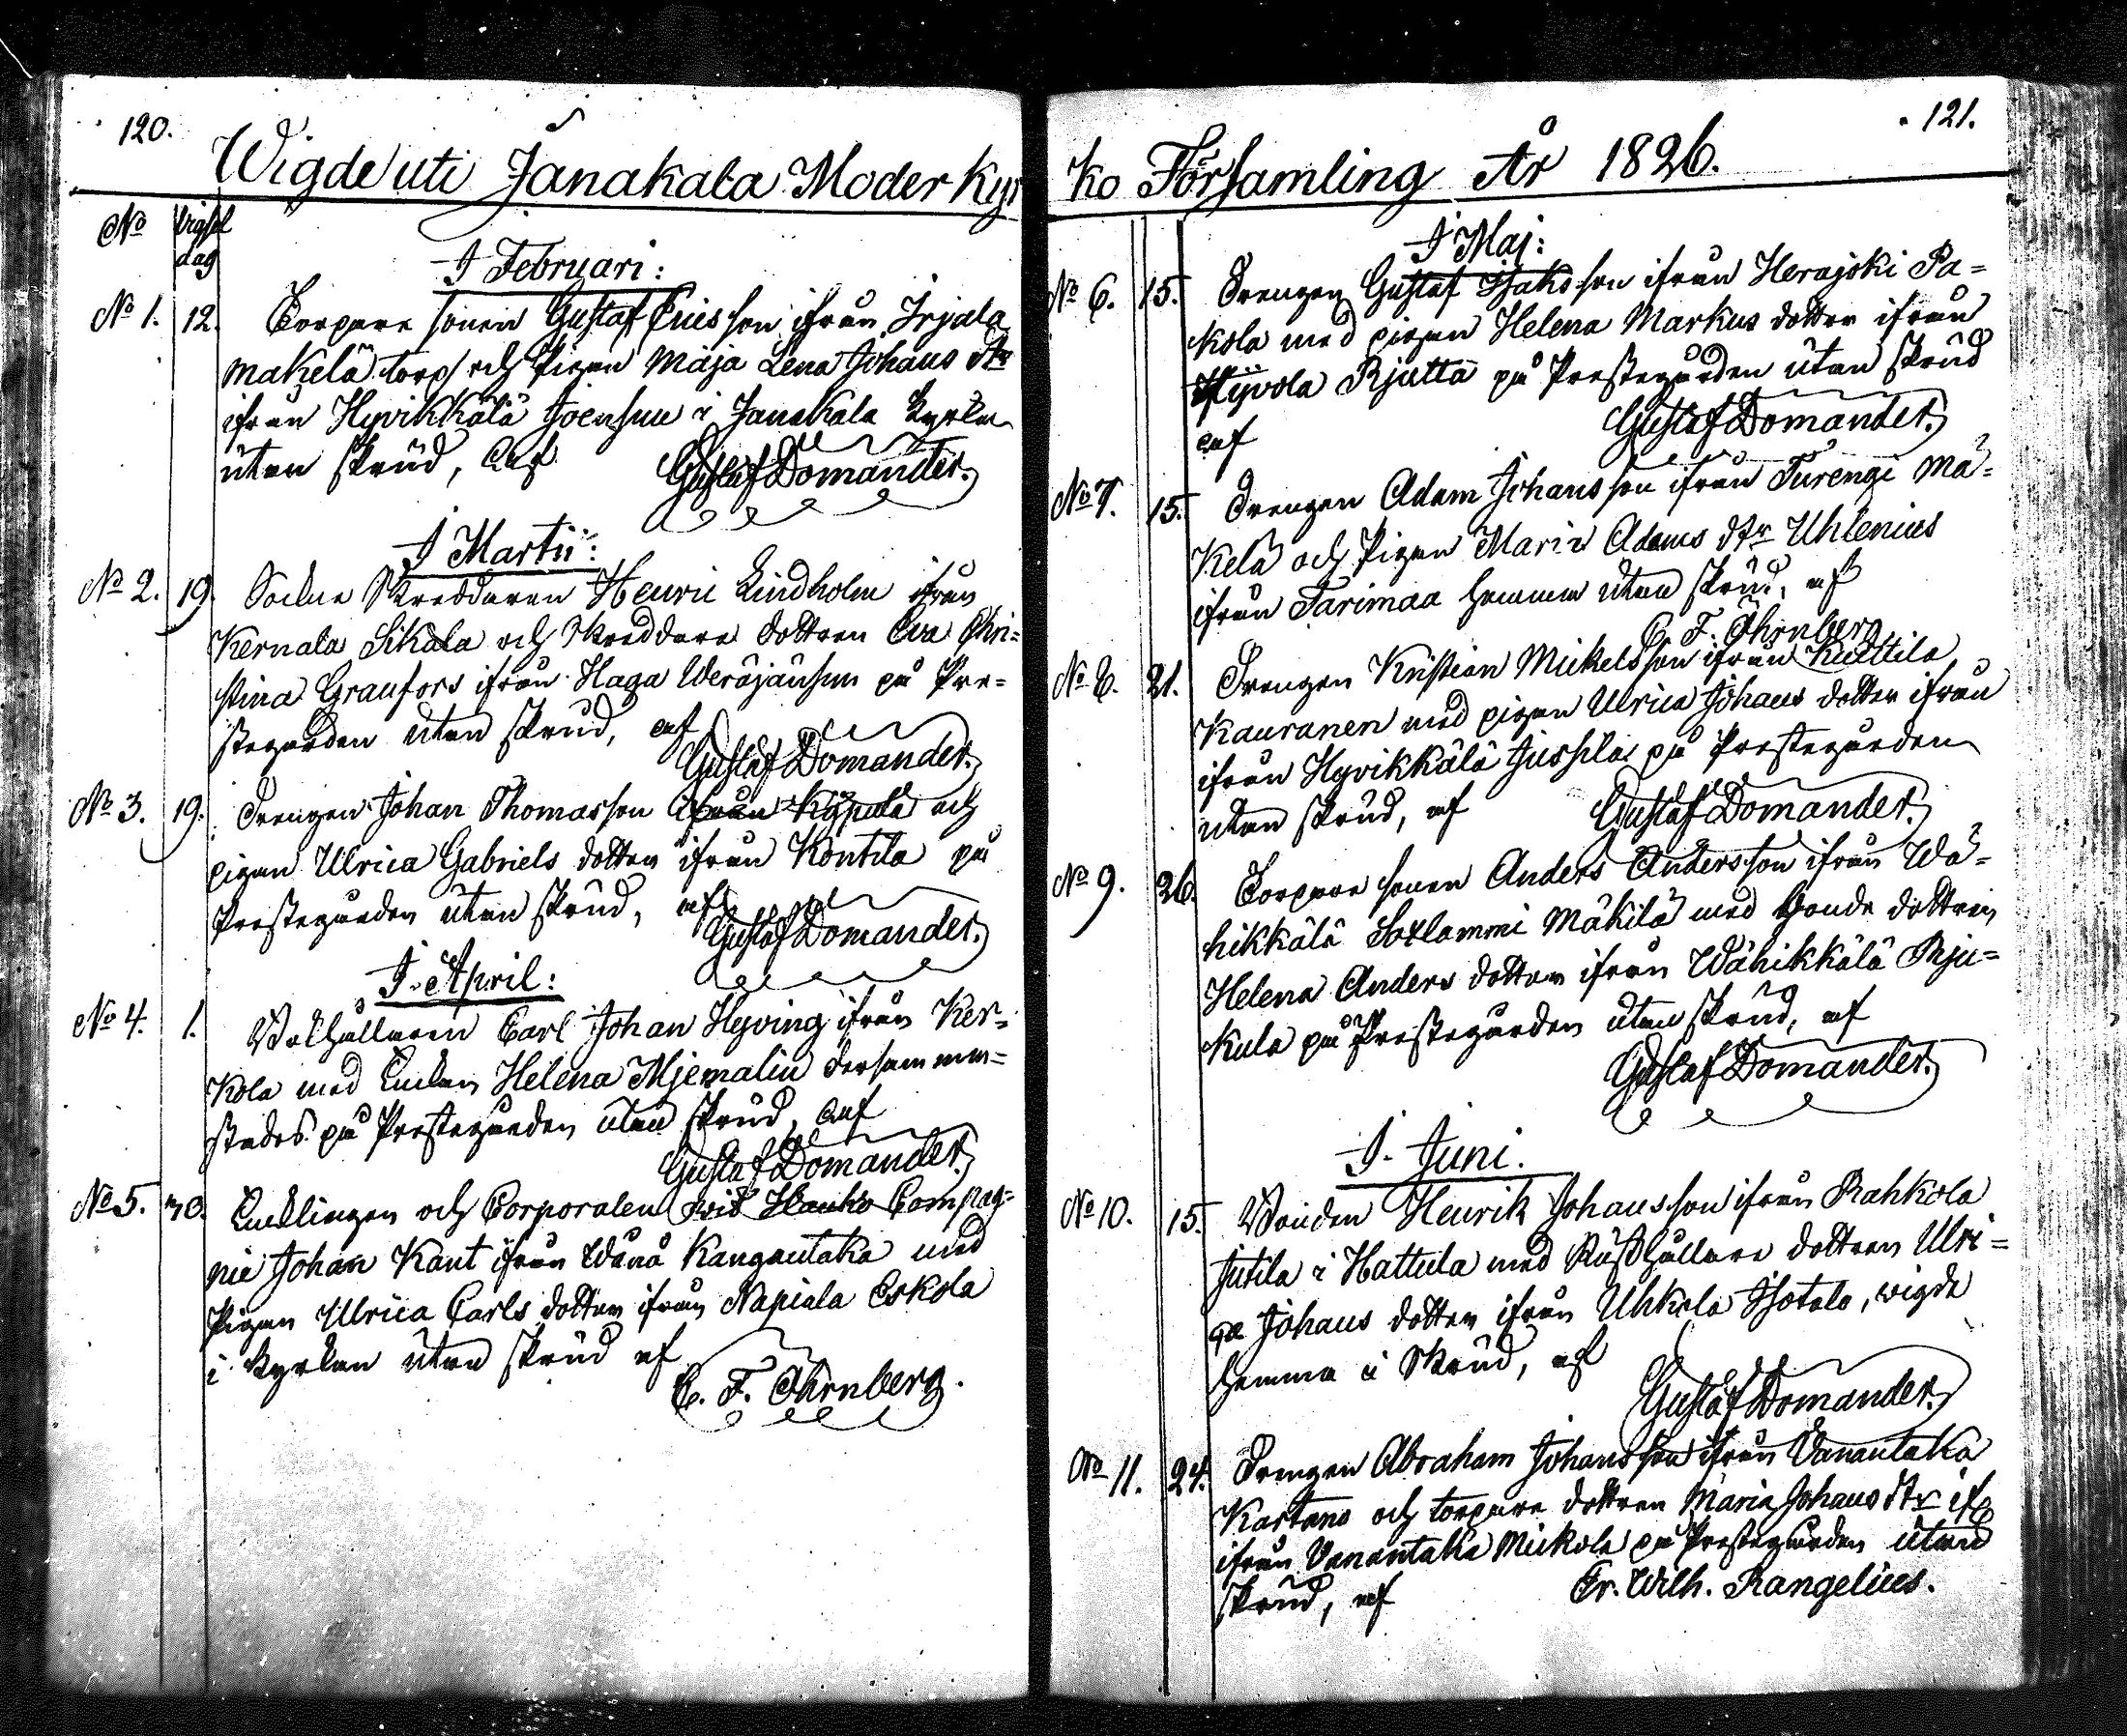 120.
Wigde uti Janakala Moder Kyr
No Vigsel
dag
I Februari:
No 1. 12. Torpare sonen Gustaf Ericsson ifrån Irjala
Makelä torp och Pigan Maja Lena Johans dtr
ifrån Hyvikkälä Joensuu i Janakala kyrka
utan skrud, af Gustaf Domander.
I Martii:
No 2. 19. Sockne Skreddaren Henric Lindholm ifrån
Kernala Sikala och Skreddare dottren Eva Chri=
stina Granfors ifrån Haga Veräjänsuu på Pre=
stegården utan skrud, af
Gustaf Domander.
No 3. 19. Drengen Johan Thomasson ifrån och
pigan Ulrica Gabriels dotter ifrån Kontila på
Prestegården utan skrud, af
Gustaf Domander.
I April:
No 4. 1. Carl Johan Hyving ifrån Ker=
kola med Enkan Helena Mjemalin dersamma=
stades på Prestegården utan skrud, af
Gustaf Domander.
No 5. 30. Enklingen och Corporalen vid Compag=
nie Johan Kant ifrån Wånå Kangantaka med
Pigan Ulrica Carls dotter ifrån Napiala Eskola
i kyrkan utan skrud af
C. F. Öhrnberg.
121.
ko Församling År 1826.
I Maj:
No 6. 15. Drengen Gustaf Isaksson ifrån Herajoki Pa=
kola med pigan Helena Markus dotter ifrån
Rjutta på Prestegården utan skrud
af Gustaf Domander.
No 7. 15. Drengen Adam Johansson ifrån Turengi Mä=
kelä och Pigan Maria Adams dtr Uhlenius
ifrån Tarimaa hemma utan skrud, af
C. F. Öhrnberg
No 8. 21. Drengen Kristian Mickelsson ifrån Kuttila
Kauranen med pigan Ulrica Johans dotter ifrån
ifrån Hyvikkälä Jussila på Prestegården
utan skrud, af Gustaf Domander.
No 9. 26. Torpare sonen Anders Andersson ifrån Wä=
hikkälä Mäkilä med bonde dottren
Helena Anders dotter ifrån Wähikkälä Rju=
kula på Prestegården utan skrud, af
Gustaf Domander.
I Juni.
No 10. 15. Bonden Henrik Johansson ifrån Rahkola
Jutila i Hattula med Rusthållare dottren Ulri=
ca Johans dotter ifrån Uhkola Isotalo, wigde
hemma i Skrud, af
Gustaf Domander.
No 11. 24. Drengen Abraham Johansson ifrån Vanantaka
Kartano och torpare dottren Maria Johans dtr
ifrån Vanantaka Mickola på Prestegården utan
skrud, af Fr. Wilh. Rangelius.